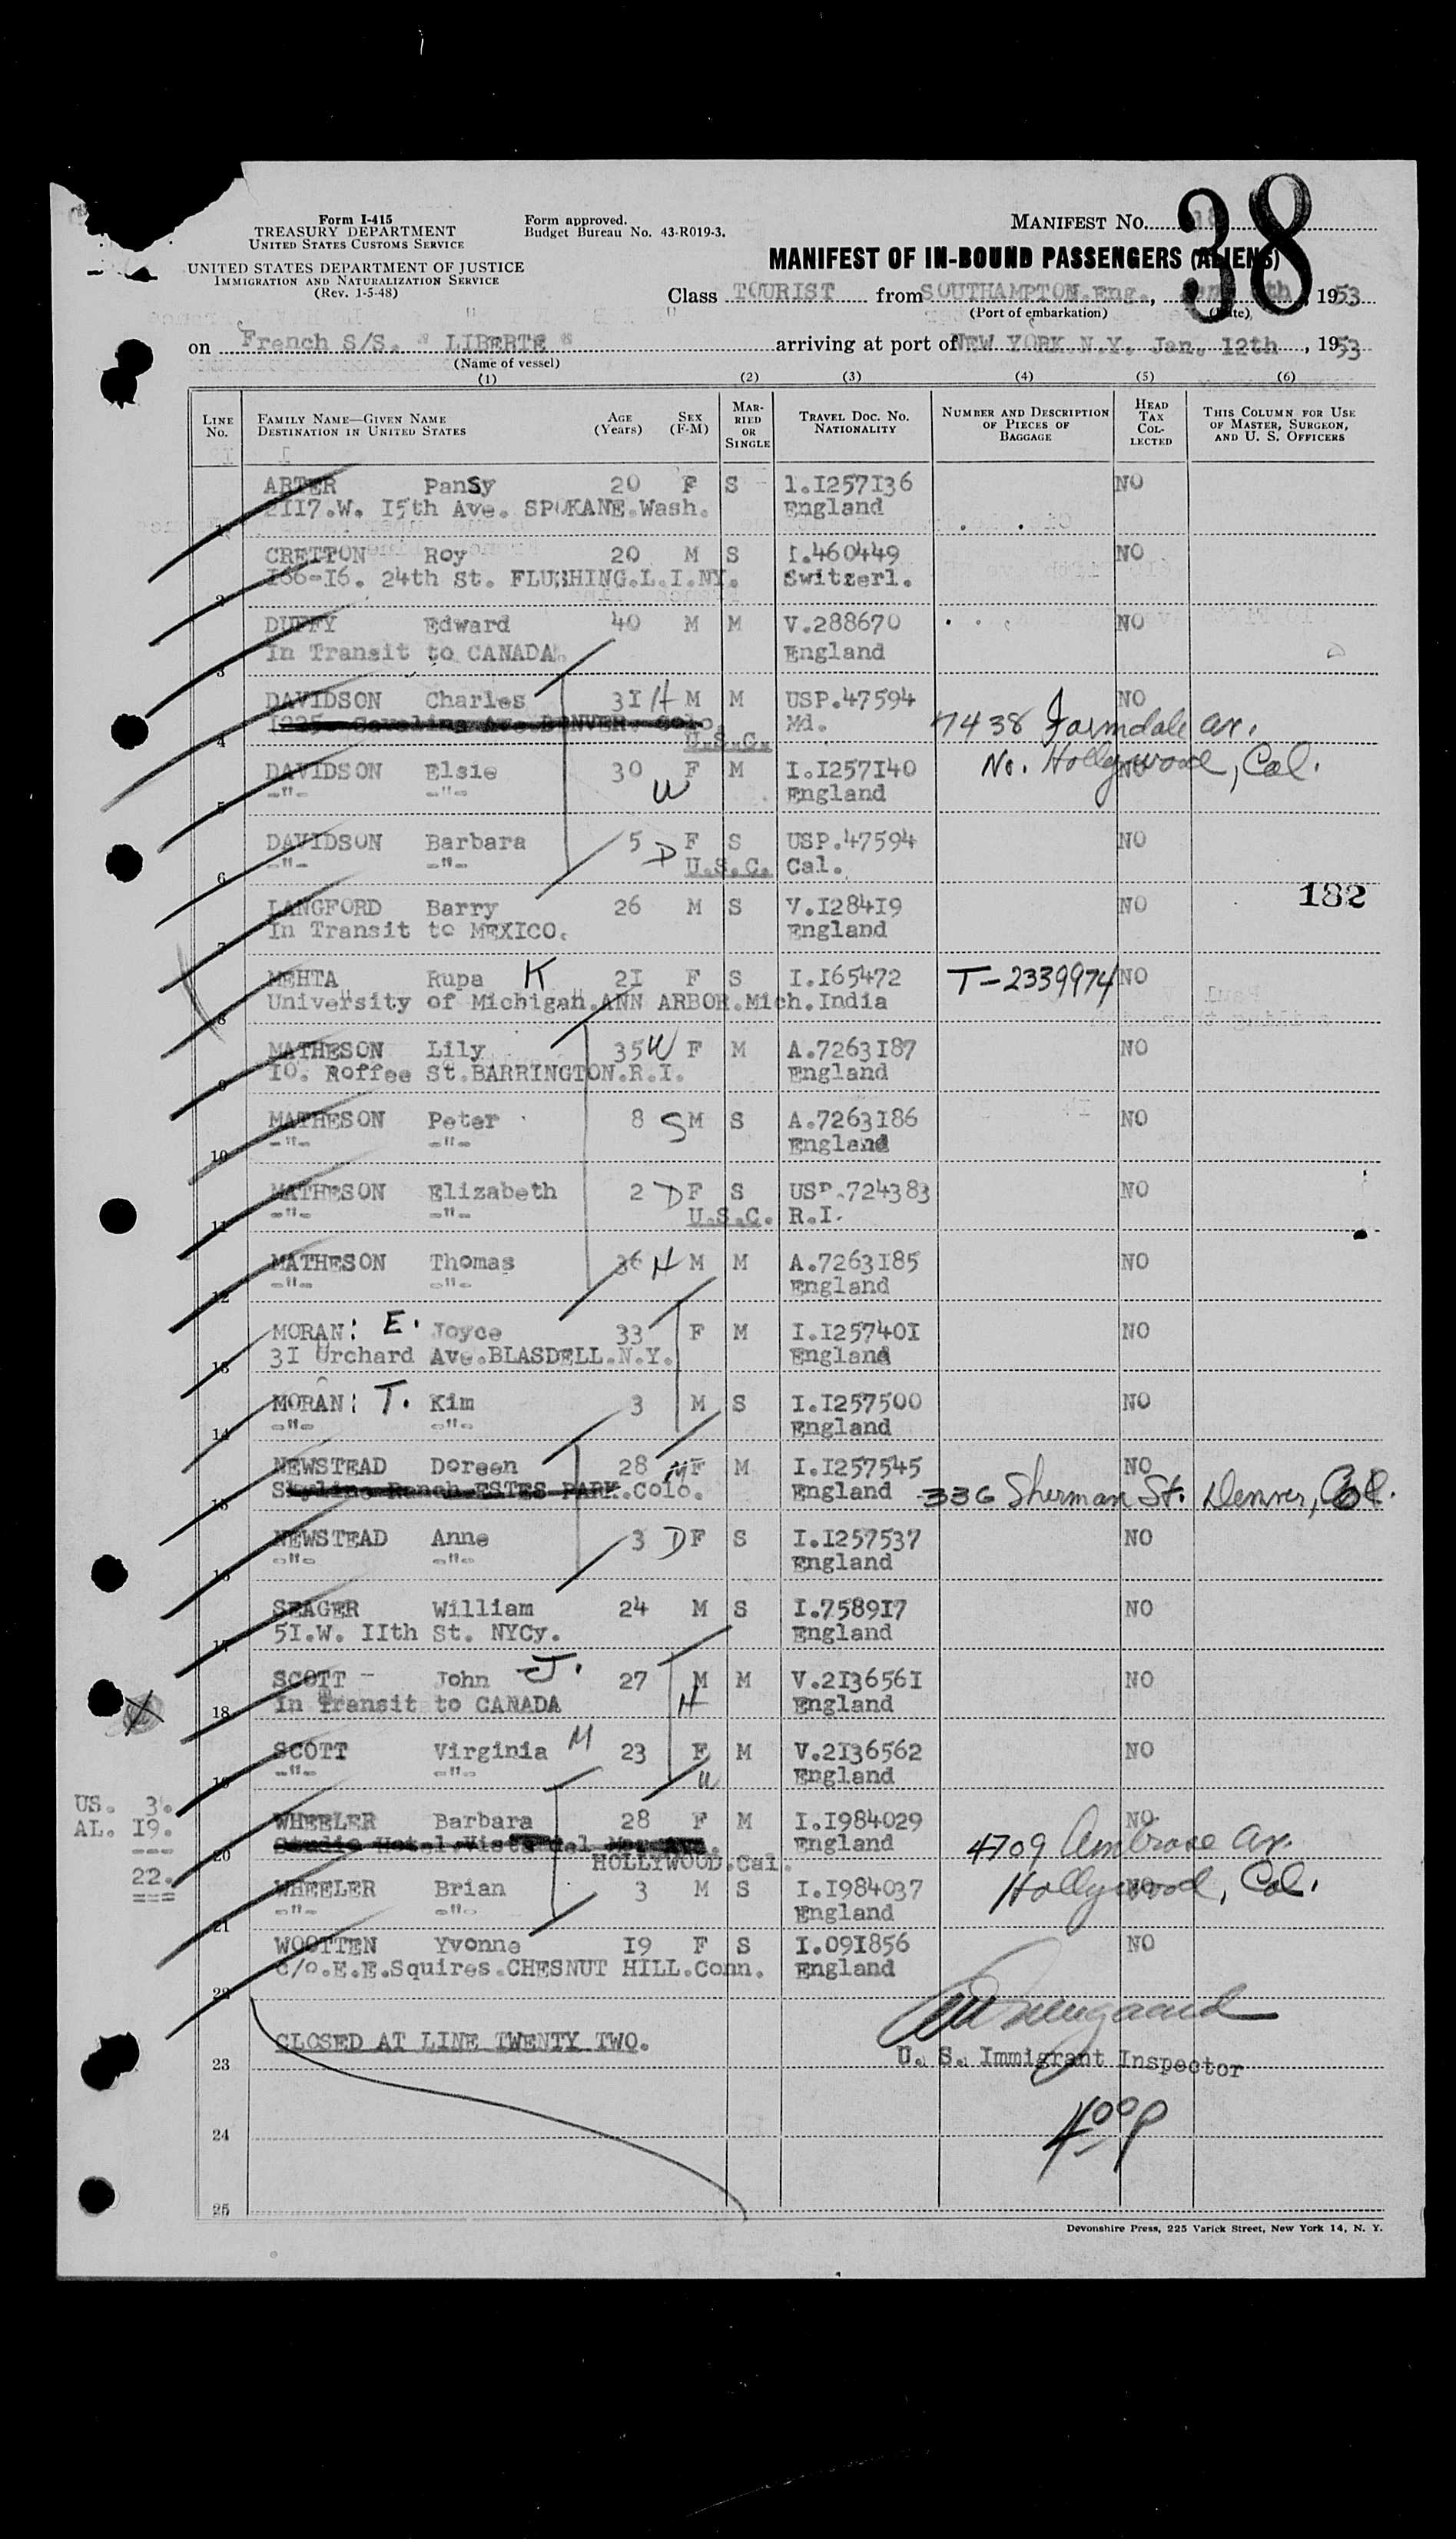 Form I-415
TREASURY DEPARTMENT
UNITED STATES CUSTOMS SERVICE
UNITED STATES DEPARTMENT OF JUSTICE
IMMIGRATION AND NATURALIZATION SERVICE
(Rev. 1-5-48)
Form approved.
Budget Bureau No. 43-R019-3.
MANIFEST No. 38
MANIFEST OF IN-BOUND PASSENGERS (ALIENS)
Class TOURIST from SOUTHAMPTON.Eng., 1953
(Port of embarkation) (Date)
on French S/S. " LIBERTE " arriving at port of NEW YORK.N.Y. Jan. 12th , 1953
(Name of vessel)
(1) (2) (3) (4) (5) (6)
LINE No. FAMILY NAME—GIVEN NAME DESTINATION IN UNITED STATES AGE (Years) SEX (F-M) MARRIED OR SINGLE TRAVEL DOC. No. NATIONALITY NUMBER AND DESCRIPTION OF PIECES OF BAGGAGE HEAD TAX COLLECTED THIS COLUMN FOR USE OF MASTER, SURGEON, AND U. S. OFFICERS
ARTER Pansy 20 F S 1.I257I36 NO
1 2II7.W. I5th Ave. SPOKANE.Wash. England
CRETTON Roy 20 M S I.460449 NO
2 I66-I6. 24th St. FLUSHING.L.I.NY. Switzerl.
DUFFY Edward 40 M M V.288670 NO
3 In Transit to CANADA. England
DAVIDSON Charles 3I H M M USP.47594 NO
4 DENVER. Colo. U.S.C. Md. 7438 Farmdale av.
DAVIDSON Elsie 30 W F M I.I257I40 NO No. Hollywood, Cal.
5 -"- -"- England
DAVIDSON Barbara 5 D F S USP.47594 NO
6 -"- -"- U.S.C. Cal.
182
LANGFORD Barry 26 M S V.I284I9 NO
7 In Transit to MEXICO. England
MEHTA Rupa K 2I F S I.I65472 T-2339974 NO
8 University of Michigan.ANN ARBOR.Mich. India
MATHESON Lily 35 W F M A.7263I87 NO
9 IO. Roffee St.BARRINGTON.R.I. England
MATHESON Peter 8 S M S A.7263I86 NO
10 -"- -"- England
MATHESON Elizabeth 2 D F S USP.724383 NO
11 -"- -"- U.S.C. R.I.
MATHESON Thomas 36 H M M A.7263I85 NO
12 -"- -"- England
MORAN: E. Joyce 33 F M I.I25740I NO
13 3I Orchard Ave.BLASDELL.N.Y. England
MORAN: T. Kim 3 M S I.I257500 NO
14 -"- -"- England
NEWSTEAD Doreen 28 M F M I.I257545 NO
15 Skyline Ranch.ESTES PARK.Colo. England 336 Sherman St. Denver, Col.
NEWSTEAD Anne 3 D F S I.I257537 NO
16 -"- -"- England
SEAGER William 24 M S I.7589I7 NO
17 5I.W. IIth St. NYCy. England
SCOTT - John J. 27 M M V.2I3656I NO
18 In Transit to CANADA H England
SCOTT Virginia M 23 F M V.2I36562 NO
19 -"- -"- W England
US. 3.
AL. I9.
---
22.
===
WHEELER Barbara 28 F M I.I984029 NO
20 Studio Hotel. HOLLYWOOD.Cal. England 4709 Ambrose av.
WHEELER Brian 3 M S I.I984037 NO Hollywood, Cal.
21 -"- -"- England
WOOTTEN Yvonne I9 F S I.09I856 NO
22 c/o.E.E.Squires.CHESNUT HILL.Conn. England
23 CLOSED AT LINE TWENTY TWO. U. S. Immigrant Inspector
24
25
Devonshire Press, 225 Varick Street, New York 14, N. Y.